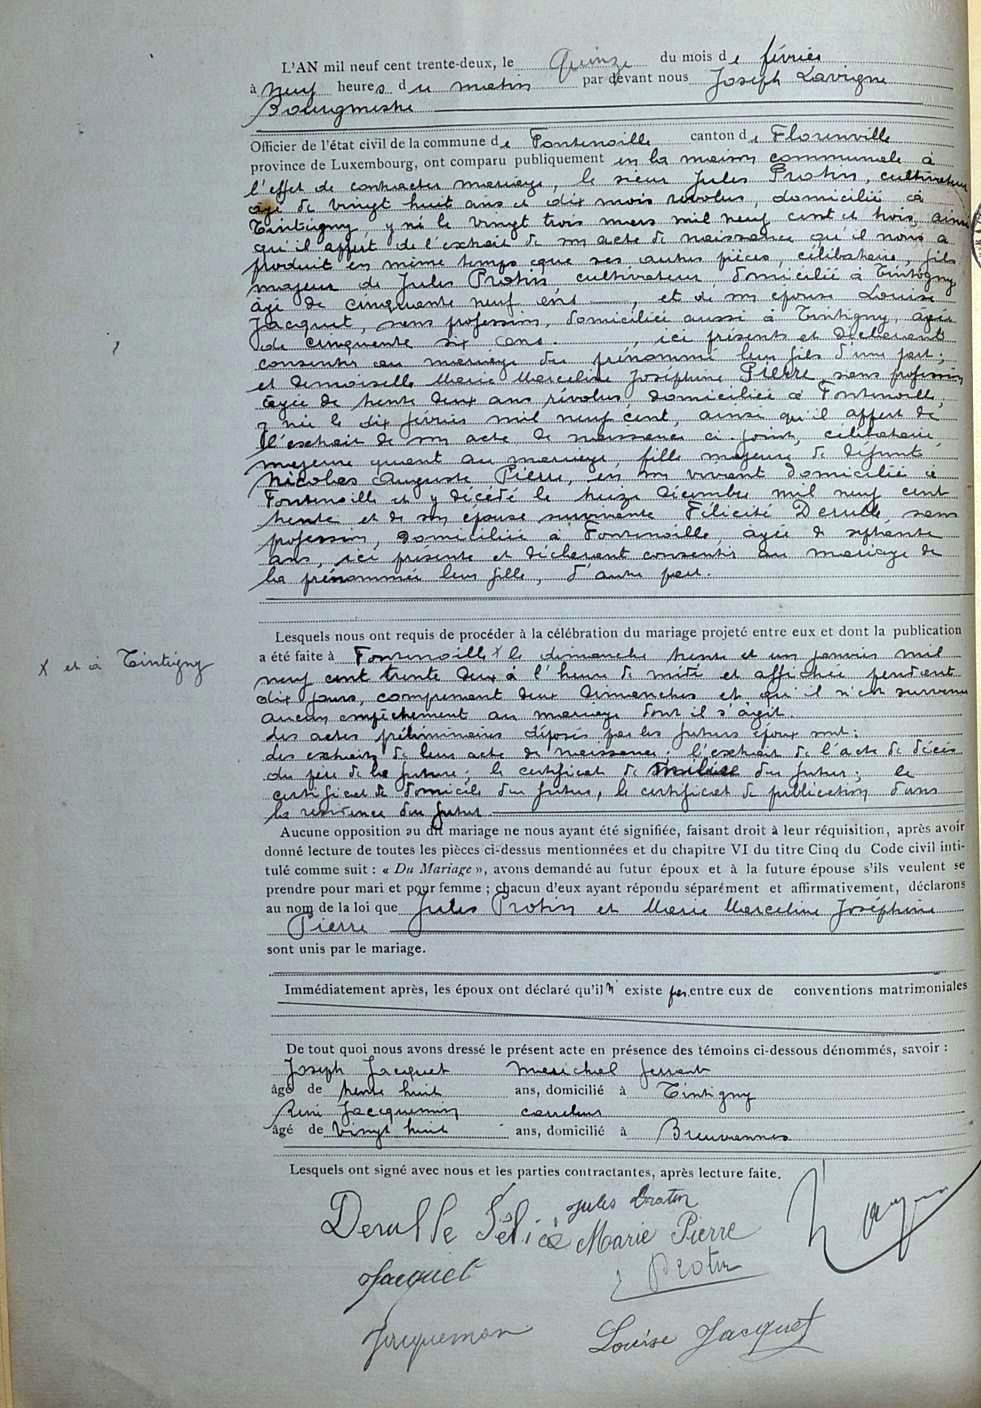 L'AN mil neuf cent trente-deux, le Quinze du mois de février
à neuf heures du matin par devant nous Joseph Lavigne
Bourgmestre
Officier de l'état civil de la commune de Fontenoille canton de Florenville
province de Luxembourg, ont comparu publiquement en la maison communale à
l'effet de contracter mariage, le sieur Jules Protin, cultivateur
âgé de vingt huit ans et dix mois révolus, domicilié à
Tintigny, y né le vingt trois mars mil neuf cent et trois, ainsi
qu'il appert de l'extrait de son acte de naissance qu'il nous a
produit en même temps que ses autres pièces, célibataire, fils
majeur de Jules Protin, cultivateur, domicilié à Tintigny
âgé de cinquante neuf ans, et de son épouse Louise
Jacquet, sans profession, domiciliée aussi à Tintigny, âgée
de cinquante six ans, ici présents et déclarant
consentir au mariage du prénommé leur fils d'une part;
et demoiselle Marie Marceline Joséphine Pierre, sans profession
âgée de trente deux ans révolus domiciliée à Fontenoille,
y née le dix février mil neuf cent, ainsi qu'il appert de
l'extrait de son acte de naissance ci-joint, célibataire,
majeure quant au mariage, fille majeure de défunt
Nicolas Auguste Pierre, en son vivant domicilié à
Fontenoille et y décédé le treize décembre mil neuf cent
trente et de son épouse survivante Félicité Derulle, sans
profession, domiciliée à Fontenoille, âgée de septante
ans, ici présente et déclarant consentir au mariage de
la prénommée leur fille, d'autre part.
Lesquels nous ont requis de procéder à la célébration du mariage projeté entre eux et dont la publication
X et à Tintigny
a été faite à Fontenoille X le dimanche trente et un janvier mil
neuf cent trente deux à l'heure de midi et affichée pendant
dix jours, comprenant deux dimanches et qu'il n'est survenu
aucun empêchement au mariage dont il s'agit.
Les actes préliminaires déposés par les futurs époux sont:
des extraits de leur acte de naissance; l'extrait de l'acte de décès
du père de la future; le certificat de milice du futur; le
certificat de domicile du futur, le certificat de publication dans
la résidence du futur
Aucune opposition au dit mariage ne nous ayant été signifiée, faisant droit à leur réquisition, après avoir
donné lecture de toutes les pièces ci-dessus mentionnées et du chapitre VI du titre Cinq du Code civil inti-
tulé comme suit : « Du Mariage », avons demandé au futur époux et à la future épouse s'ils veulent se
prendre pour mari et pour femme ; chacun d'eux ayant répondu séparément et affirmativement, déclarons
au nom de la loi que Jules Protin et Marie Marceline Joséphine
Pierre
sont unis par le mariage.
Immédiatement après, les époux ont déclaré qu'il n'existe pas entre eux de conventions matrimoniales
De tout quoi nous avons dressé le présent acte en présence des témoins ci-dessous dénommés, savoir :
Joseph Jacquet maréchal ferrant
âgé de trente huit ans, domicilié à Tintigny
René Jacquemin carreleur
âgé de vingt huit ans, domicilié à Breuvannes
Lesquels ont signé avec nous et les parties contractantes, après lecture faite.
Jules Protin
Derulle Félicé Marie Pierre
Jacquet J Protin
Jacquemin Louise Jacquet